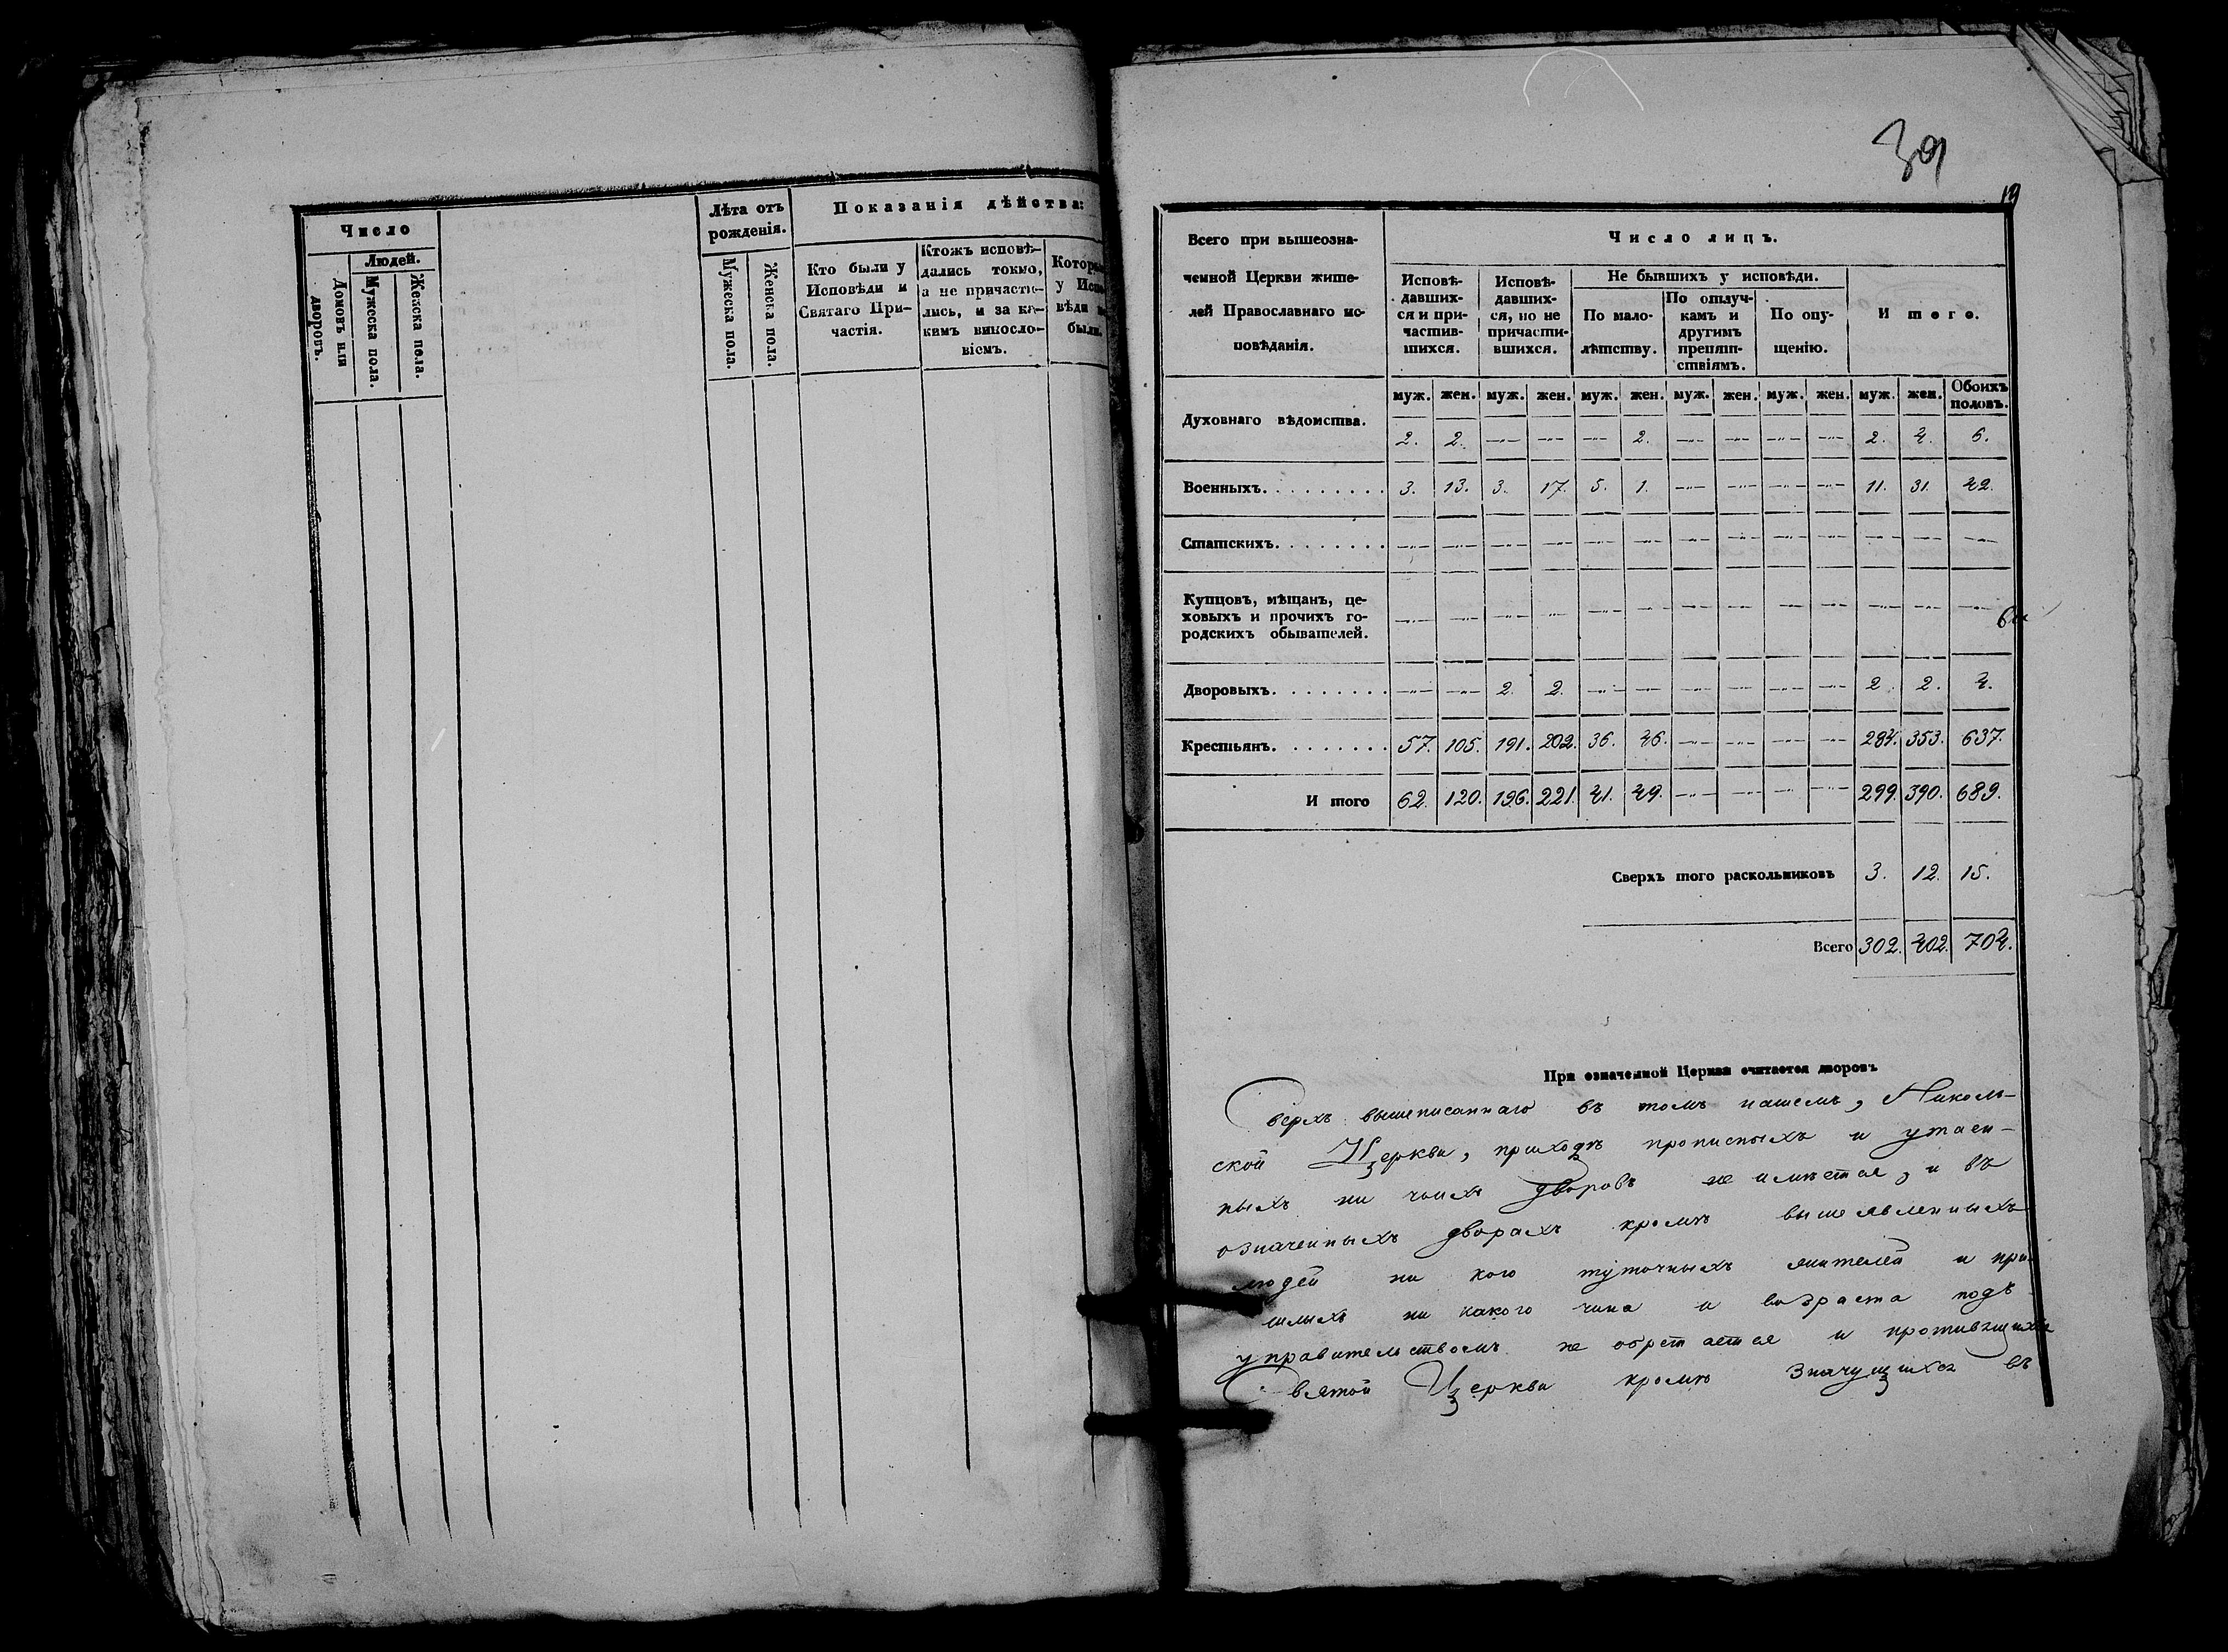 Число
Людей.
Домовъ или дворовъ.
Мужеска пола.
Женска пола.
Лѣта отъ
рожденія.
Мужеска пола.
Женска пола.
Показанія дѣйства:
Кто были у
Исповѣди и
Святаго При-
частія.
Ктожъ исповѣ-
дались токмо,
а не причасти-
лись, и за ка-
кимъ виносло-
віемъ.
у
вѣди
были.
39
19
Всего при вышеозна-
ченной Церкви жите-
лей Православнаго ис-
повѣданія.
Число лицъ.
Исповѣ-
давших-
ся и при-
частив-
шихся.
Исповѣ-
давших-
ся, но не
причасти-
вшихся.
Не бывшихъ у исповѣди.
По мало-
лѣтству.
По отлуч-
камъ и
другимъ
препят-
ствіямъ.
По опу-
щенію.
И того.
муж. жен. муж. жен. муж. жен. муж. жен. муж. жен. муж. жен. Обоихъ половъ.
Духовнаго вѣдомства. 2. 2. —„— —„— —„— 2. —„— —„— —„— —„— 2. 4. 6.
Военныхъ. . . . . . . . . 3. 13. 3. 17. 5. 1. —„— —„— —„— —„— 11. 31. 42.
Статскихъ. . . . . . . . —„— —„— —„— —„— —„— —„— —„— —„— —„— —„— —„— —„— —„—
Купцовъ, мѣщанъ, це-
ховыхъ и прочихъ го-
родскихъ обывателей. —„— —„— —„— —„— —„— —„— —„— —„— —„— —„— —„— —„— —„—
Дворовыхъ. . . . . . . . —„— —„— 2. 2. —„— —„— —„— —„— —„— —„— 2. 2. 4.
Крестьянъ. . . . . . . . 57. 105. 191. 202. 36. 46. —„— —„— —„— —„— 284. 353. 637.
И того 62. 120. 196. 221. 41. 49. —„— —„— —„— —„— 299. 390. 689.
Сверхъ того раскольниковъ 3. 12. 15.
Всего 302. 402. 704.
При означенной Церкви считается дворовъ
Сверхъ вышеписаннаго въ томъ нашемъ, Николь-
ской Церкви, приходѣ прописныхъ и утаен-
ныхъ ни чьихъ дворовъ не имѣется, и въ
означенныхъ дворахъ кромѣ вышеявленныхъ
людей ни кого тутошныхъ жителей и при-
шлыхъ ни какого чина и возраста подъ
управительствомъ не обретается и противящихся
Святой Церкви кромѣ значущихся въ